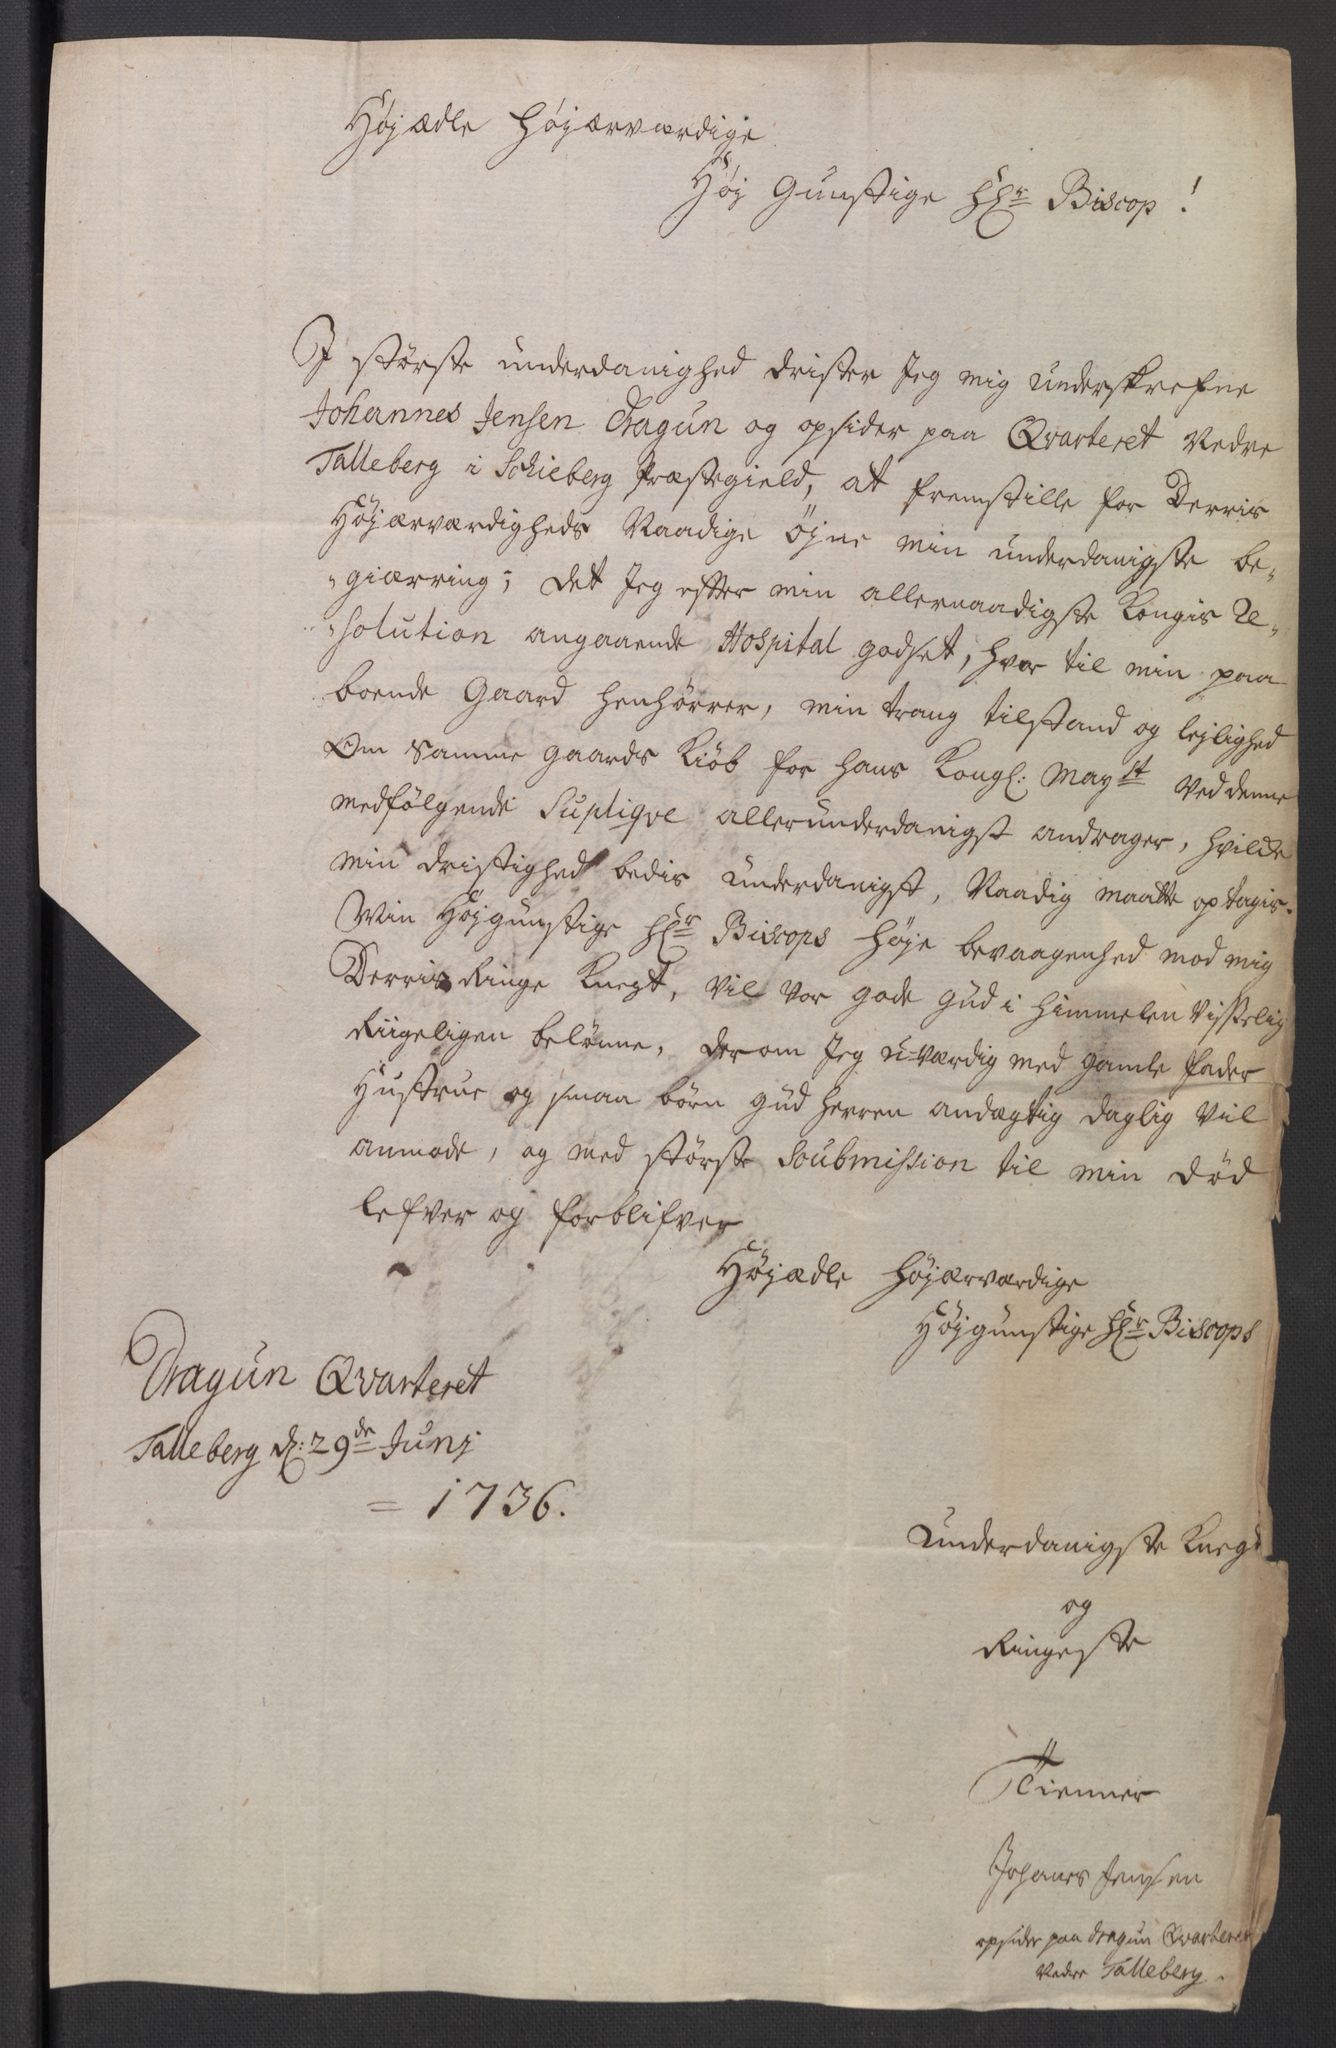 Højædle Højærværdige
Høj Gunstige HHr Biscop!
I største underdanighed drister Jeg mig underskrefne
Johannes Jensen Dragun og opsider paa Qvarteret Nedre
Talleberg i Schieberg Præstegield, at fremstille for Derris
Højærværdigheds Naadige Öjne min underdanigste be„
„giærring; det Jeg efter min allernaadigste Kongis Re„
„solution angaaende Hospital godset, hvor til min paa
boende Gaard henhører, min trang tilstand og lejlighed
Om samme gaards Kiöb for hans Kongl: Mayst ved denne
medfølgende Supliqve allerunderdanigst andrager, hvilcke
min dristighed bedis underdanigst, Naadig maatte optagis.
Min Højgunstige HHr Biscops høje bevaagenhed mod mig
Derris Ringe Knegt, vil vor gode Gud i himmelen visselig
Riigeligen belønne, derom Jeg u-værdig med gamle fader
Hustrue og smaa børn gud herren andægtig daglig vil
anmode, og med største Soubmission til min død
lefver og forblifver
Højædle Højærværdige
Højgunstige HHr Biscops
Dragun Qvarteret
Talleberg d: 29de Junj
= 1736.
Underdanigste Knegt
og
Ringeste
Tienner
Johanes Jensen
opsider paa dragun Qvarteret
Nedre Talleberg.